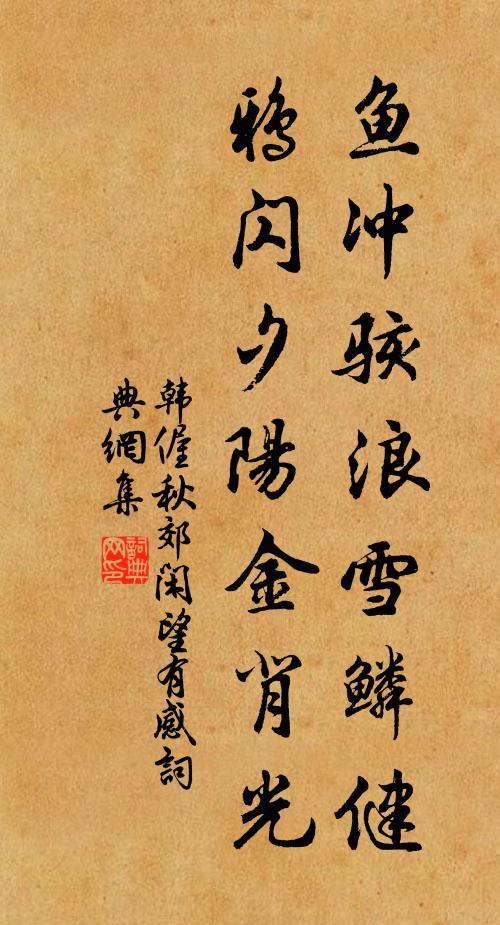 鱼冲骇浪雪鳞健
鸦闪夕陽金背光
韩偓秋郊闲望有感詞
典網集
詞典
网印